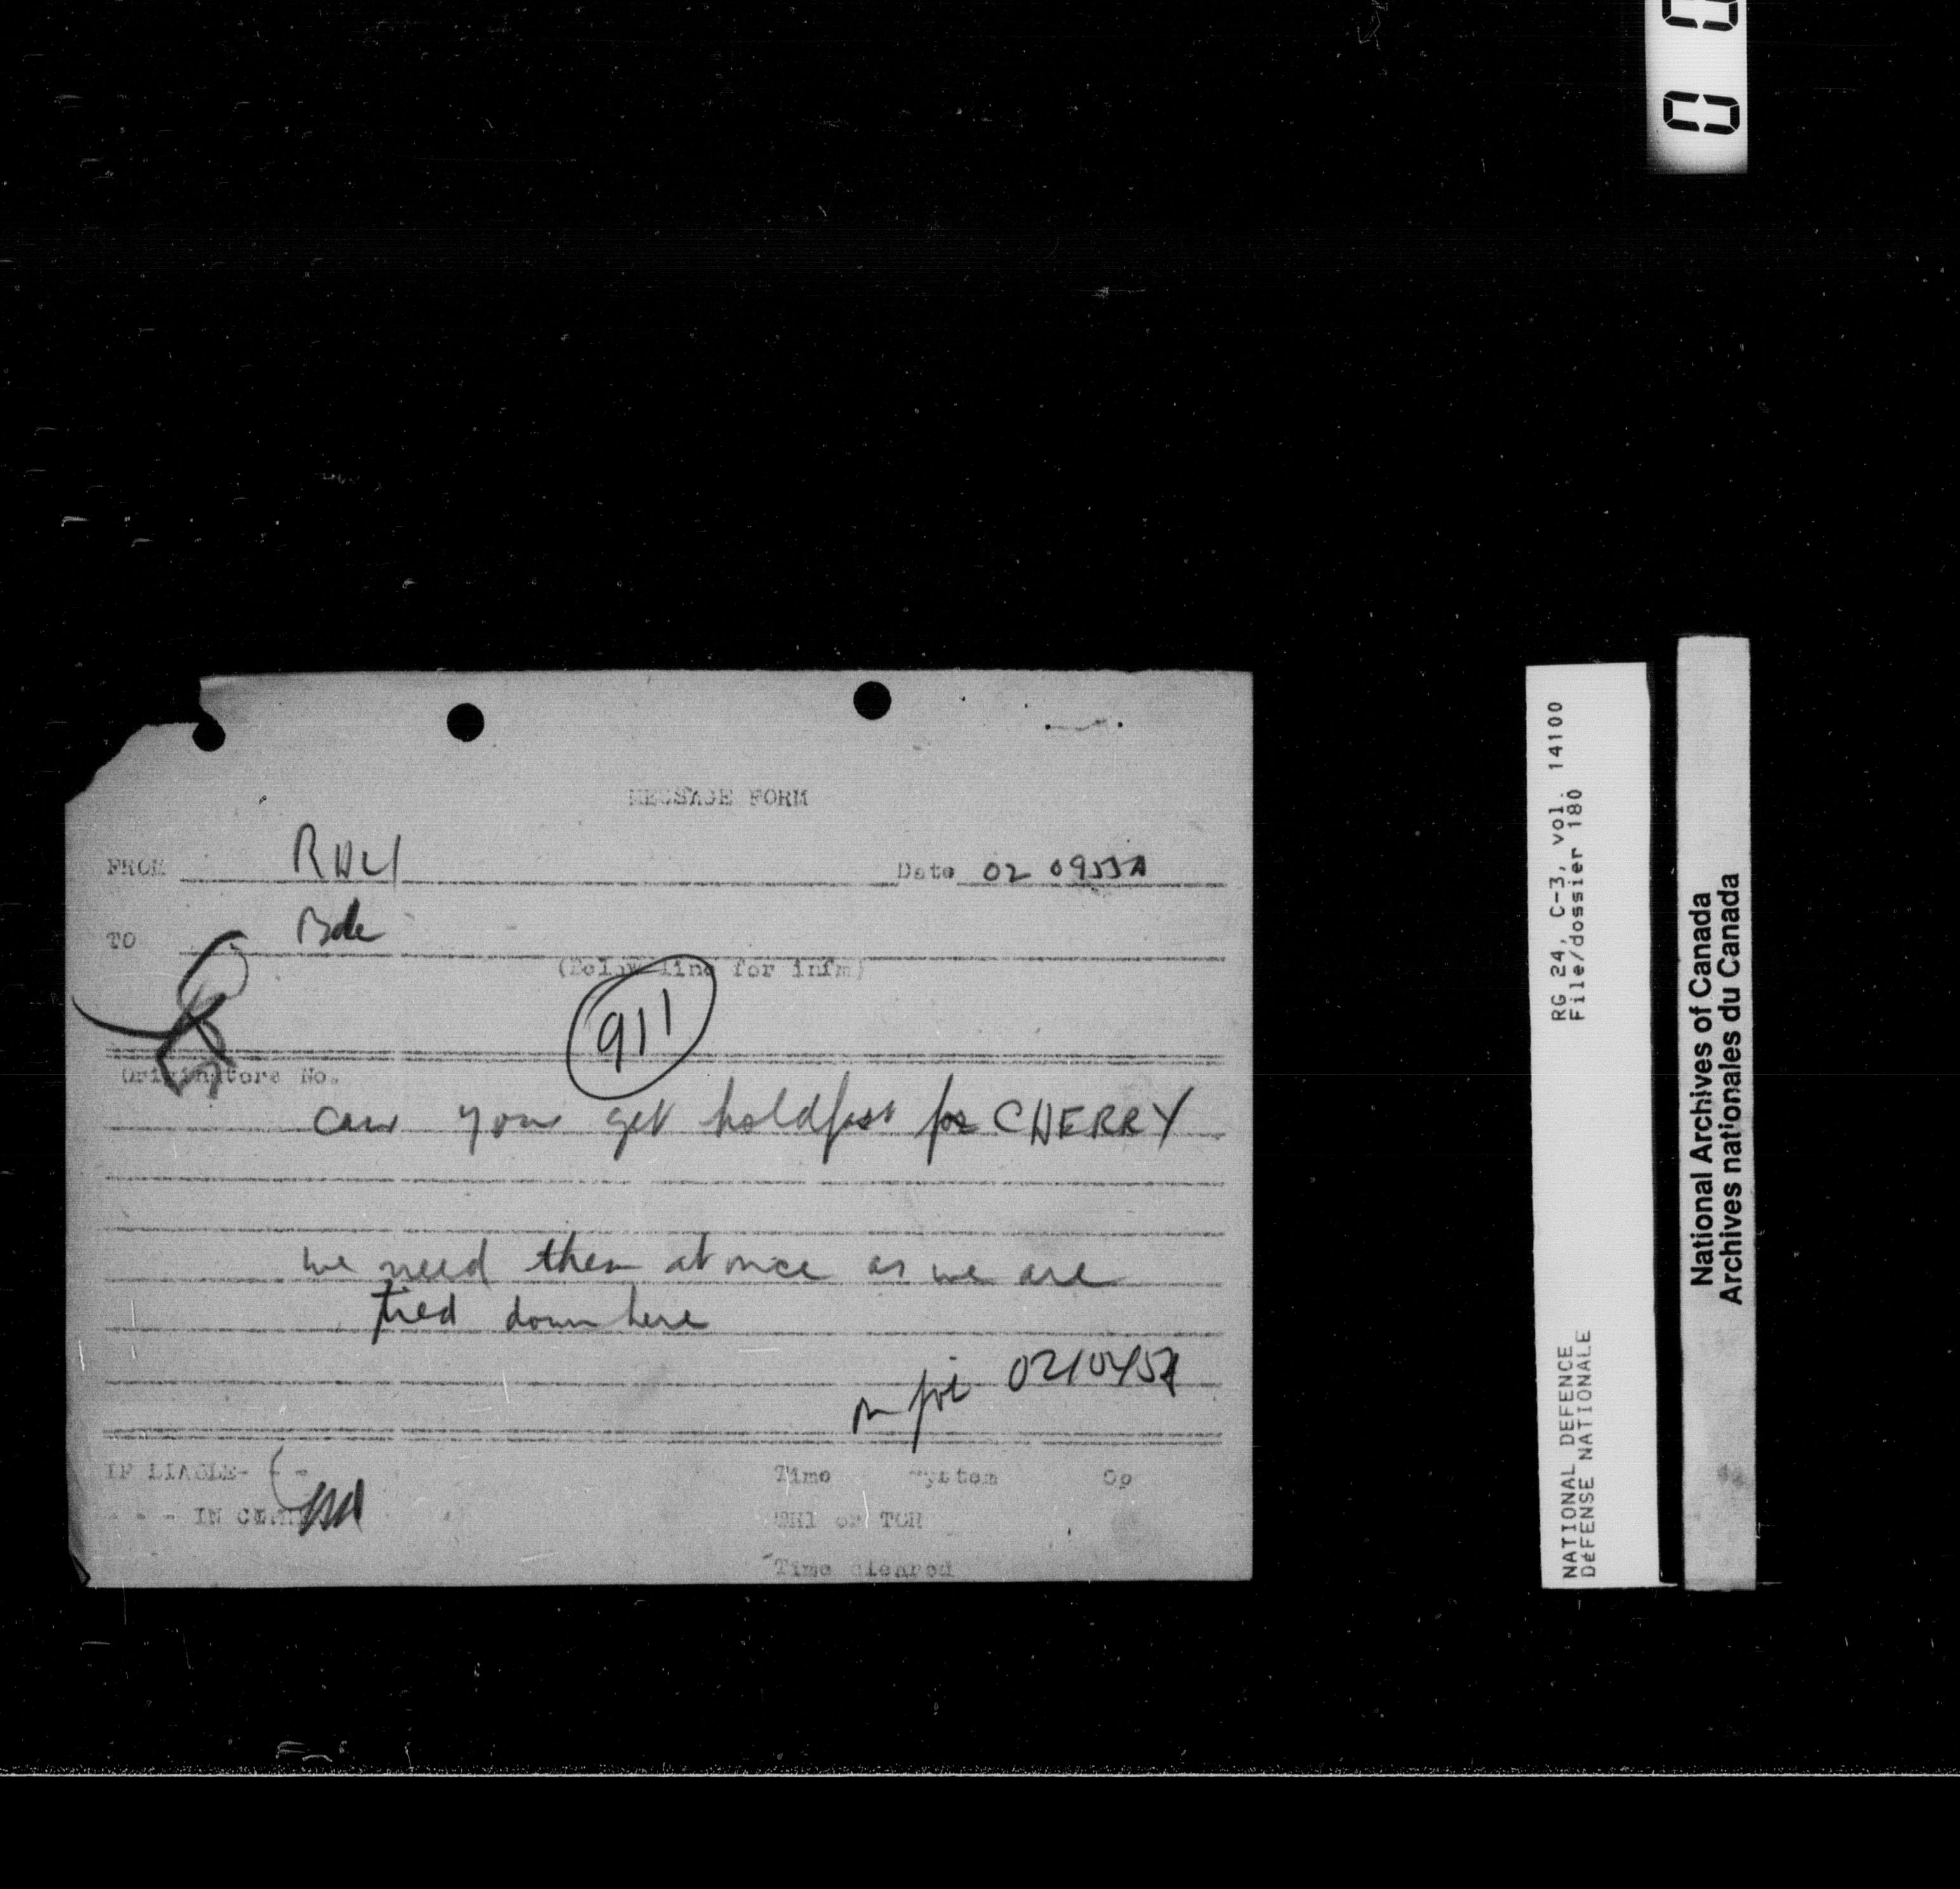 MESSAGE FORM
FROM RHLI Date 02 0955A
TO Bde
(Below line for infm)
911
Originators No.
can you get holdfast for CHERRY
we need them at once as we are
tied down here
021045A
IF LIABLE-
- - - IN C
Time System Op
THI or TOR
Time cleared
RG 24, C-3, vol. 14100
File/dossier 180
NATIONAL DEFENCE
DéFENSE NATIONALE
National Archives of Canada
Archives nationales du Canada
0 0